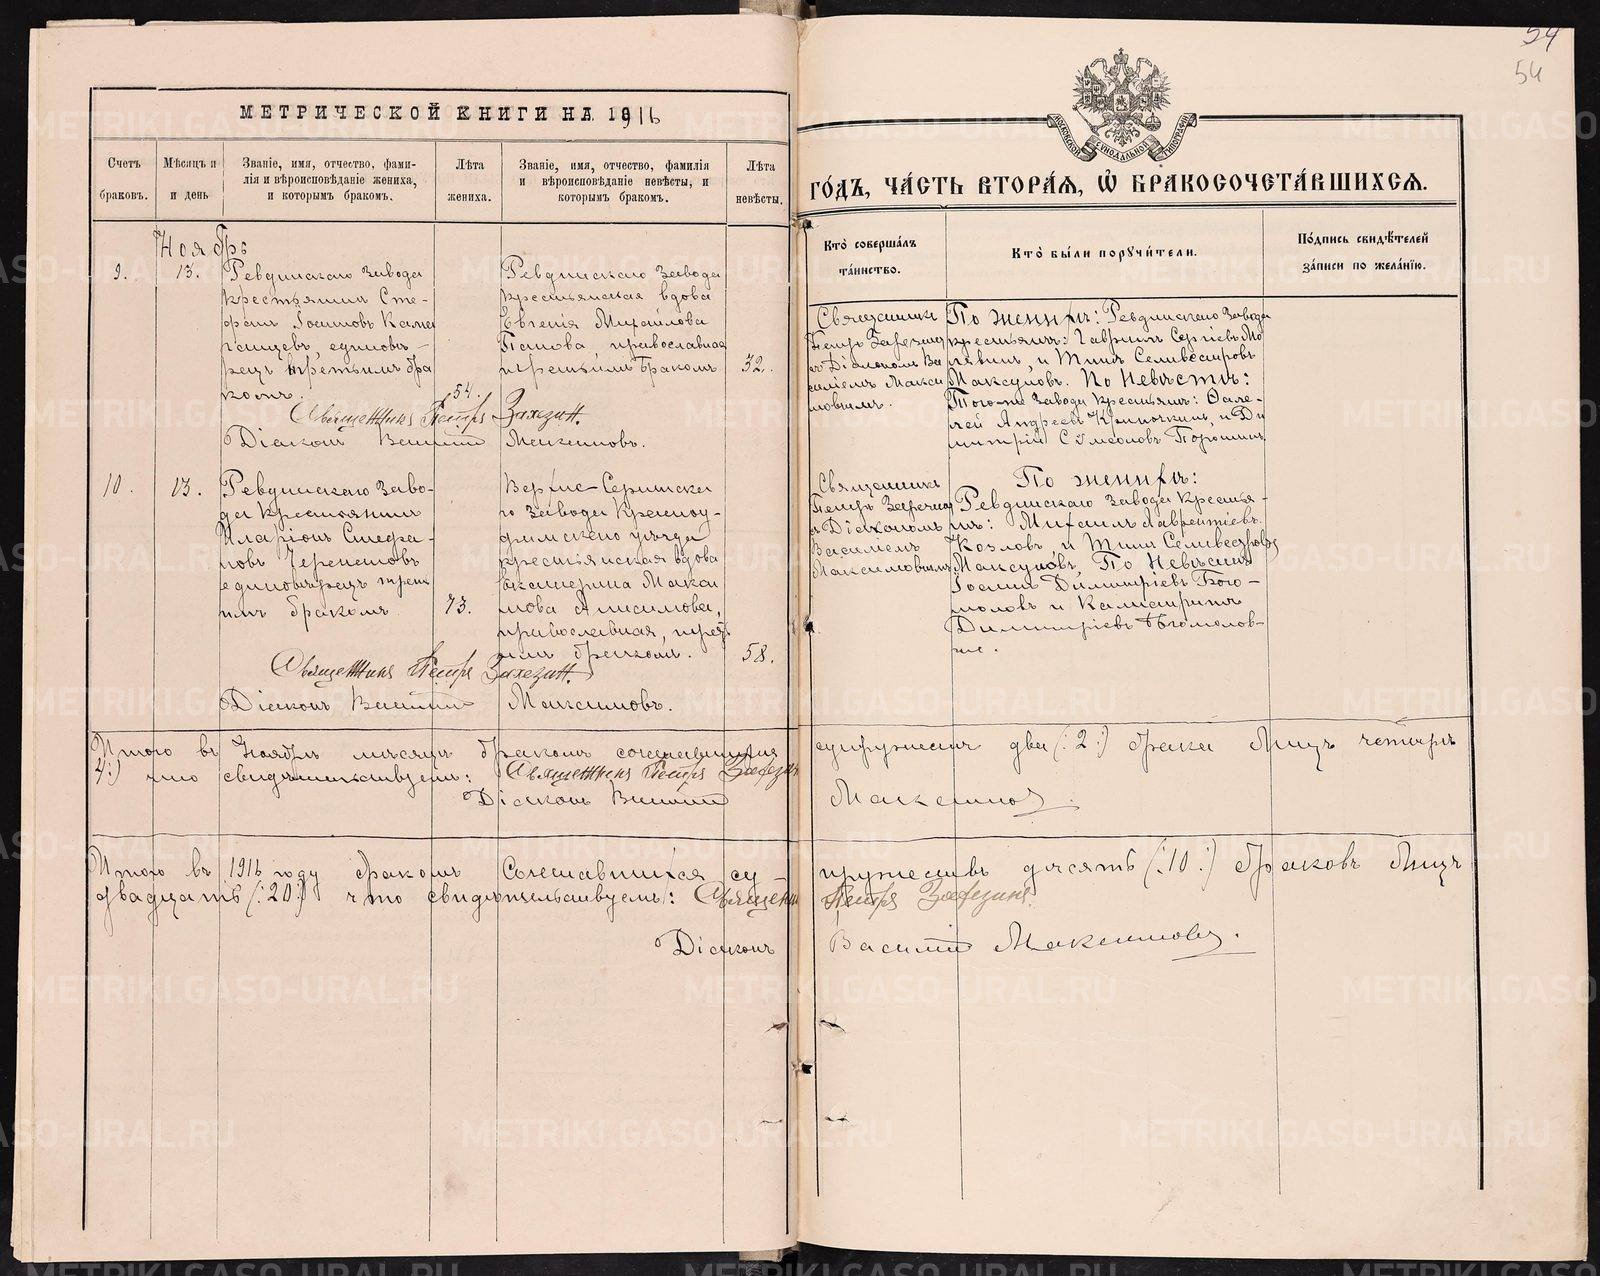 54
54
МЕТРИЧЕСКОЙ КНИГИ НА 1916
МОСКОВСКОЙ СѴНОДАЛЬНОЙ ТИПОГРАФІИ
ГО́ДЪ, ЧА́СТЬ ВТОРА́Я, Ѡ҆ БРАКОСОЧЕТА́ВШИХСЯ.
Счетъ
браковъ.
Мѣсяцъ и
и день
Званіе, имя, отчество, фами-
лія и вѣроисповѣданіе жениха,
и которымъ бракомъ.
Лѣта
жениха.
Званіе, имя, отчество, фамилія
и вѣроисповѣданіе невѣсты, и
которымъ бракомъ.
Лѣта
невѣсты.
Кто̀ соверша́лъ
та́инство.
Кто̀ бы́ли порꙋчи́тели.
По́дпись свидѣ́телей
за́писи по жела́нію.
Ноябрь
9.
13.
Ревдинскаго завода
крестьянинъ Сте-
фанъ Іоанновъ
единовѣ-
рецъ третьимъ бра
комъ.
54.
Ревдинскаго Завода
крестьянская вдова
Евгенія Михайлова
Попова, православная
и третьимъ бракомъ
32.
Священникъ Петръ
Діаконъ Василій Максимовъ.
Священникъ
Петръ
съ Діакономъ Ва
силіемъ Макси
мовымъ.
По женихѣ: Ревдинскаго Завода
крестьяне: Гавріилъ Сергіевъ Мо
и Титъ Селивестровъ
Максуновъ. По Невѣстѣ:
Того-же Завода крестьяне:
Андреевъ и Ди
митрій Сѵмеоновъ
10.
13.
Ревдинскаго Заво-
да крестьянинъ
Иларіонъ Стефа-
новъ
единовѣрецъ трет
имъ бракомъ
73.
Верхне-Сергинска
го Завода Красноу-
фимскаго уѣзда
крестьянская вдова
Екатерина Макси
мова Анисимова,
православная, трет
имъ бракомъ.
58.
Священникъ Петръ
Діаконъ Василій Максимовъ.
Священникъ
Петръ
съ Діакономъ
Василіемъ
Максимовымъ
По женихѣ:
Ревдинскаго Завода Крестья-
не: Михаилъ Лаврентіевъ
Козловъ и Титъ Селивестровъ
Максуновъ, По Невѣстѣ
Іоаннъ Димитріевъ Бого-
моловъ и
Димитріевъ Богомолов-
Итого въ Ноябрѣ мѣсяцѣ бракомъ сочетавшихся супружествъ два (:2:) брака Лицъ четыре
4:) что свидѣтельствуемъ: Священникъ Петръ
Діаконъ Василій Максимовъ.
Итого въ 1916 году бракомъ Сочетавшихся су-пружествъ десять (:10:) браковъ Лицъ
двадцать (:20:) что свидѣтельствуемъ: Священникъ Петръ
Діаконъ Василій Максимовъ.
METRIKI.GASO-URAL.RU